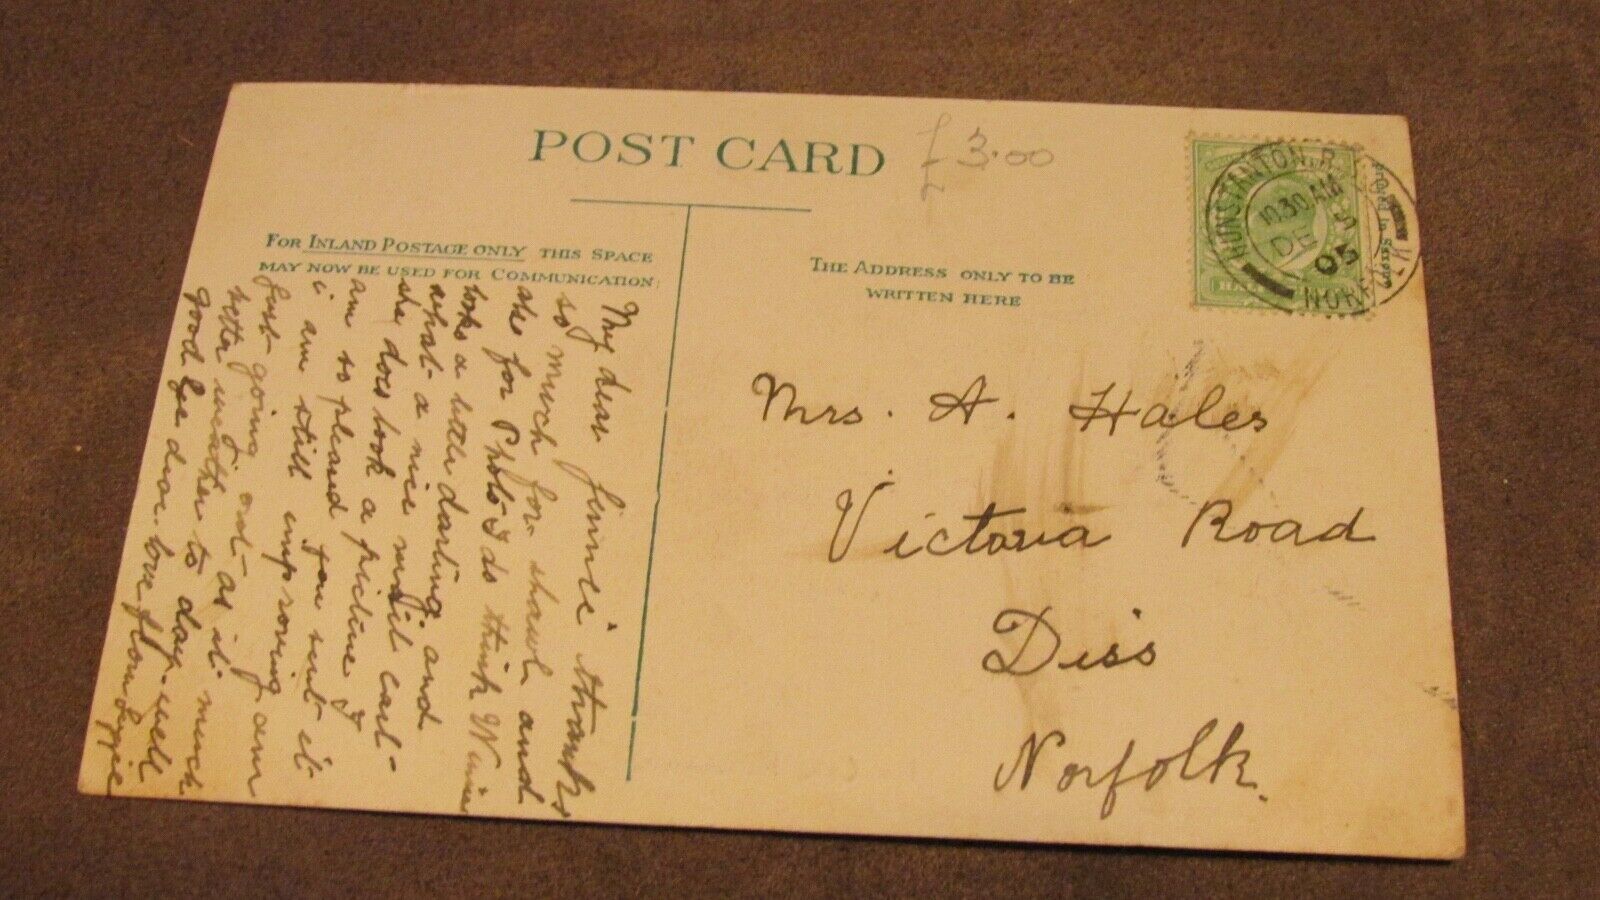 POST CARD
£3.00
FOR INLAND POSTAGE ONLY THIS SPACE
MAY NOW BE USED FOR COMMUNICATION
THE ADDRESS ONLY TO BE
WRITTEN HERE
HUNSTANTON. R.
10.30 AM
DE 5
05
NORF
Printed in Saxony
My dear thanks
so much for shawl and
also for Photo I do think Winnie
looks a little darling and
what a nice mail cart
she does look a picture I
am so pleased you sent it
i am still improving am
just going out as it much
better weather to day well
good bye dear. love from
Mrs. A. Hales
Victoria Road
Diss
Norfolk.